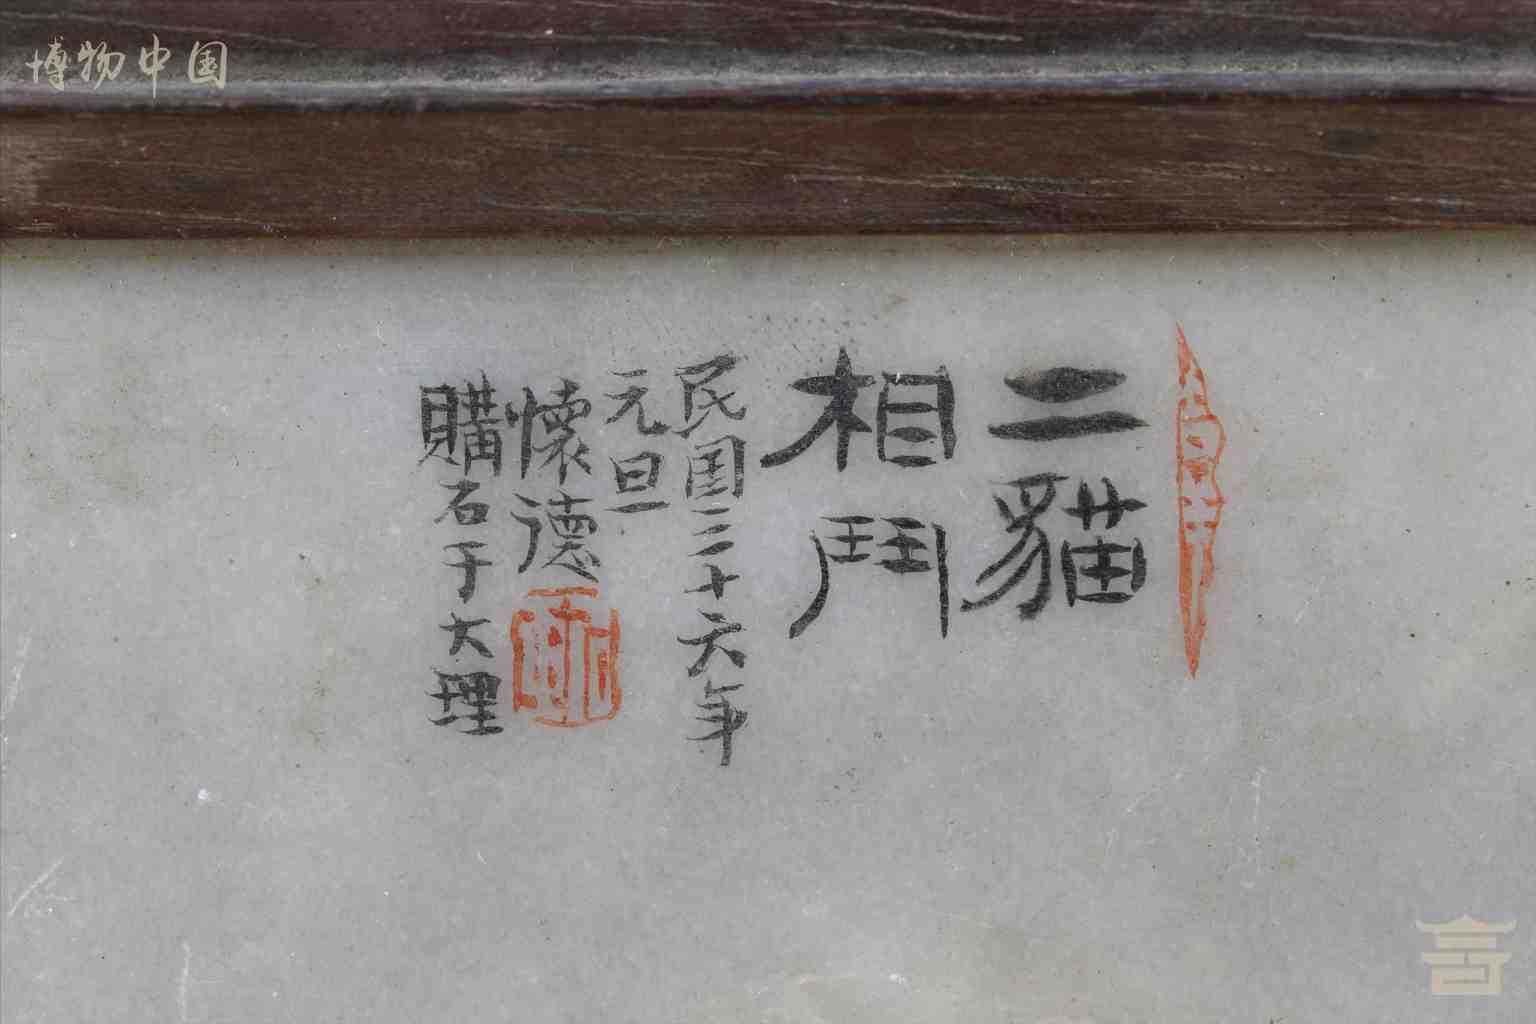 博物中国
二貓
相鬥
民国三十六年
元旦
懷德
購石于大理